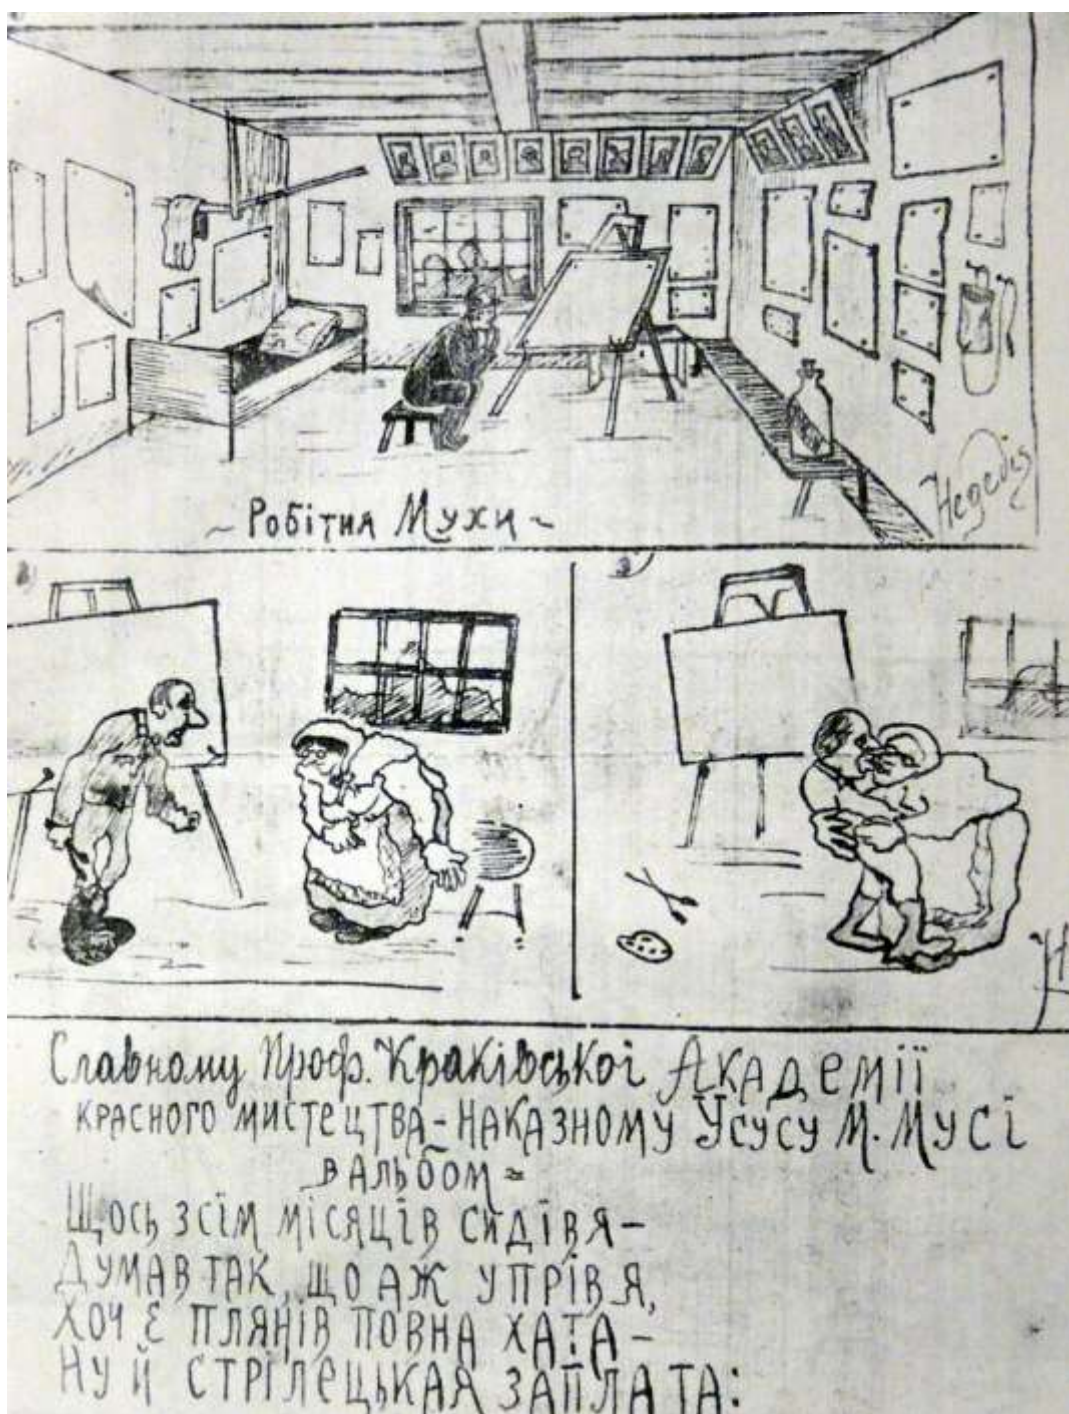 ~ Робітня Мухи ~
Славному Проф. Краківської Академії
красного мистецтва - наказному Усусу М. Мусі
в альбом =
Щось зсім місяців сидівя -
Думав так, що аж упрівя,
Хоч є плянів повна хата -
Ну й стрілецькая заплата: